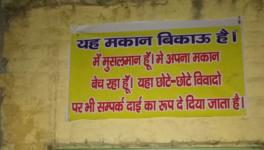 यह मकान बिकाऊ है।
मैं मुसलमान हूँ। मे अपना मकान
बेच रहा हूँ। यहा छोटे-छोटे विवादो
पर भी सम्पर्क दाई का रूप दे दिया जाता है।